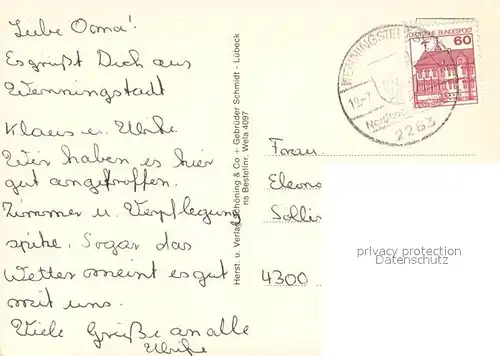 Liebe Oma!
Es grüßt Dich aus
Wenningstadt
Klaus u. Ulrike
Wir haben es hier
gut angetroffen.
Zimmer u. Verpflegung
spitze. Sogar das
Wetter meint es gut
mit uns.
Viele Grüße an alle
Ulrike
Herst. u. Verlag Schöning & Co · Gebrüder Schmidt - Lübeck
ns Bestellnr. Wela 4097
DEUTSCHE BUNDESPOST
60
2283
Frau
4300
privacy protection
Datenschutz